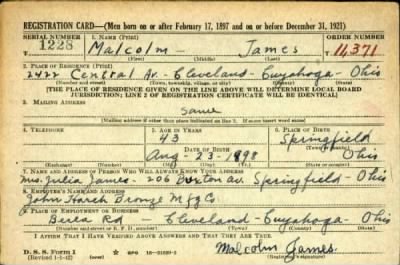 REGISTRATION CARD—(Men born on or after February 17, 1897 and on or before December 31, 1921)
SERIAL NUMBER 1. NAME (Print) ORDER NUMBER
1228 Malcolm — James 11,371
(First) (Middle) (Last)
2. PLACE OF RESIDENCE (Print)
2422 Central Av. Cleveland - Cuyahoga - Ohio
(Number and street) (Town, township, village, or city) (County) (State)
[THE PLACE OF RESIDENCE GIVEN ON THE LINE ABOVE WILL DETERMINE LOCAL BOARD
JURISDICTION; LINE 2 OF REGISTRATION CERTIFICATE WILL BE IDENTICAL]
3. MAILING ADDRESS
Same
[Mailing address if other than place indicated on line 2. If same insert word same]
4. TELEPHONE 5. AGE IN YEARS 6. PLACE OF BIRTH
43 Springfield
DATE OF BIRTH (Town or county)
Aug - 23 - 1898 Ohio
(Exchange) (Number) (Mo.) (Day) (Yr.) (State or country)
7. NAME AND ADDRESS OF PERSON WHO WILL ALWAYS KNOW YOUR ADDRESS
Mrs. Julia James - 206 Burton Av. Springfield - Ohio
8. EMPLOYER'S NAME AND ADDRESS
John Harsh Bronze Mfg Co
9. PLACE OF EMPLOYMENT OR BUSINESS
Berea Rd — Cleveland - Cuyahoga - Ohio
(Number and street or R. F. D. number) (Town) (County) (State)
I AFFIRM THAT I HAVE VERIFIED ABOVE ANSWERS AND THAT THEY ARE TRUE.
D. S. S. Form 1
(Revised 1-1-42) (over) GPO
Malcolm James
(Registrant's signature)